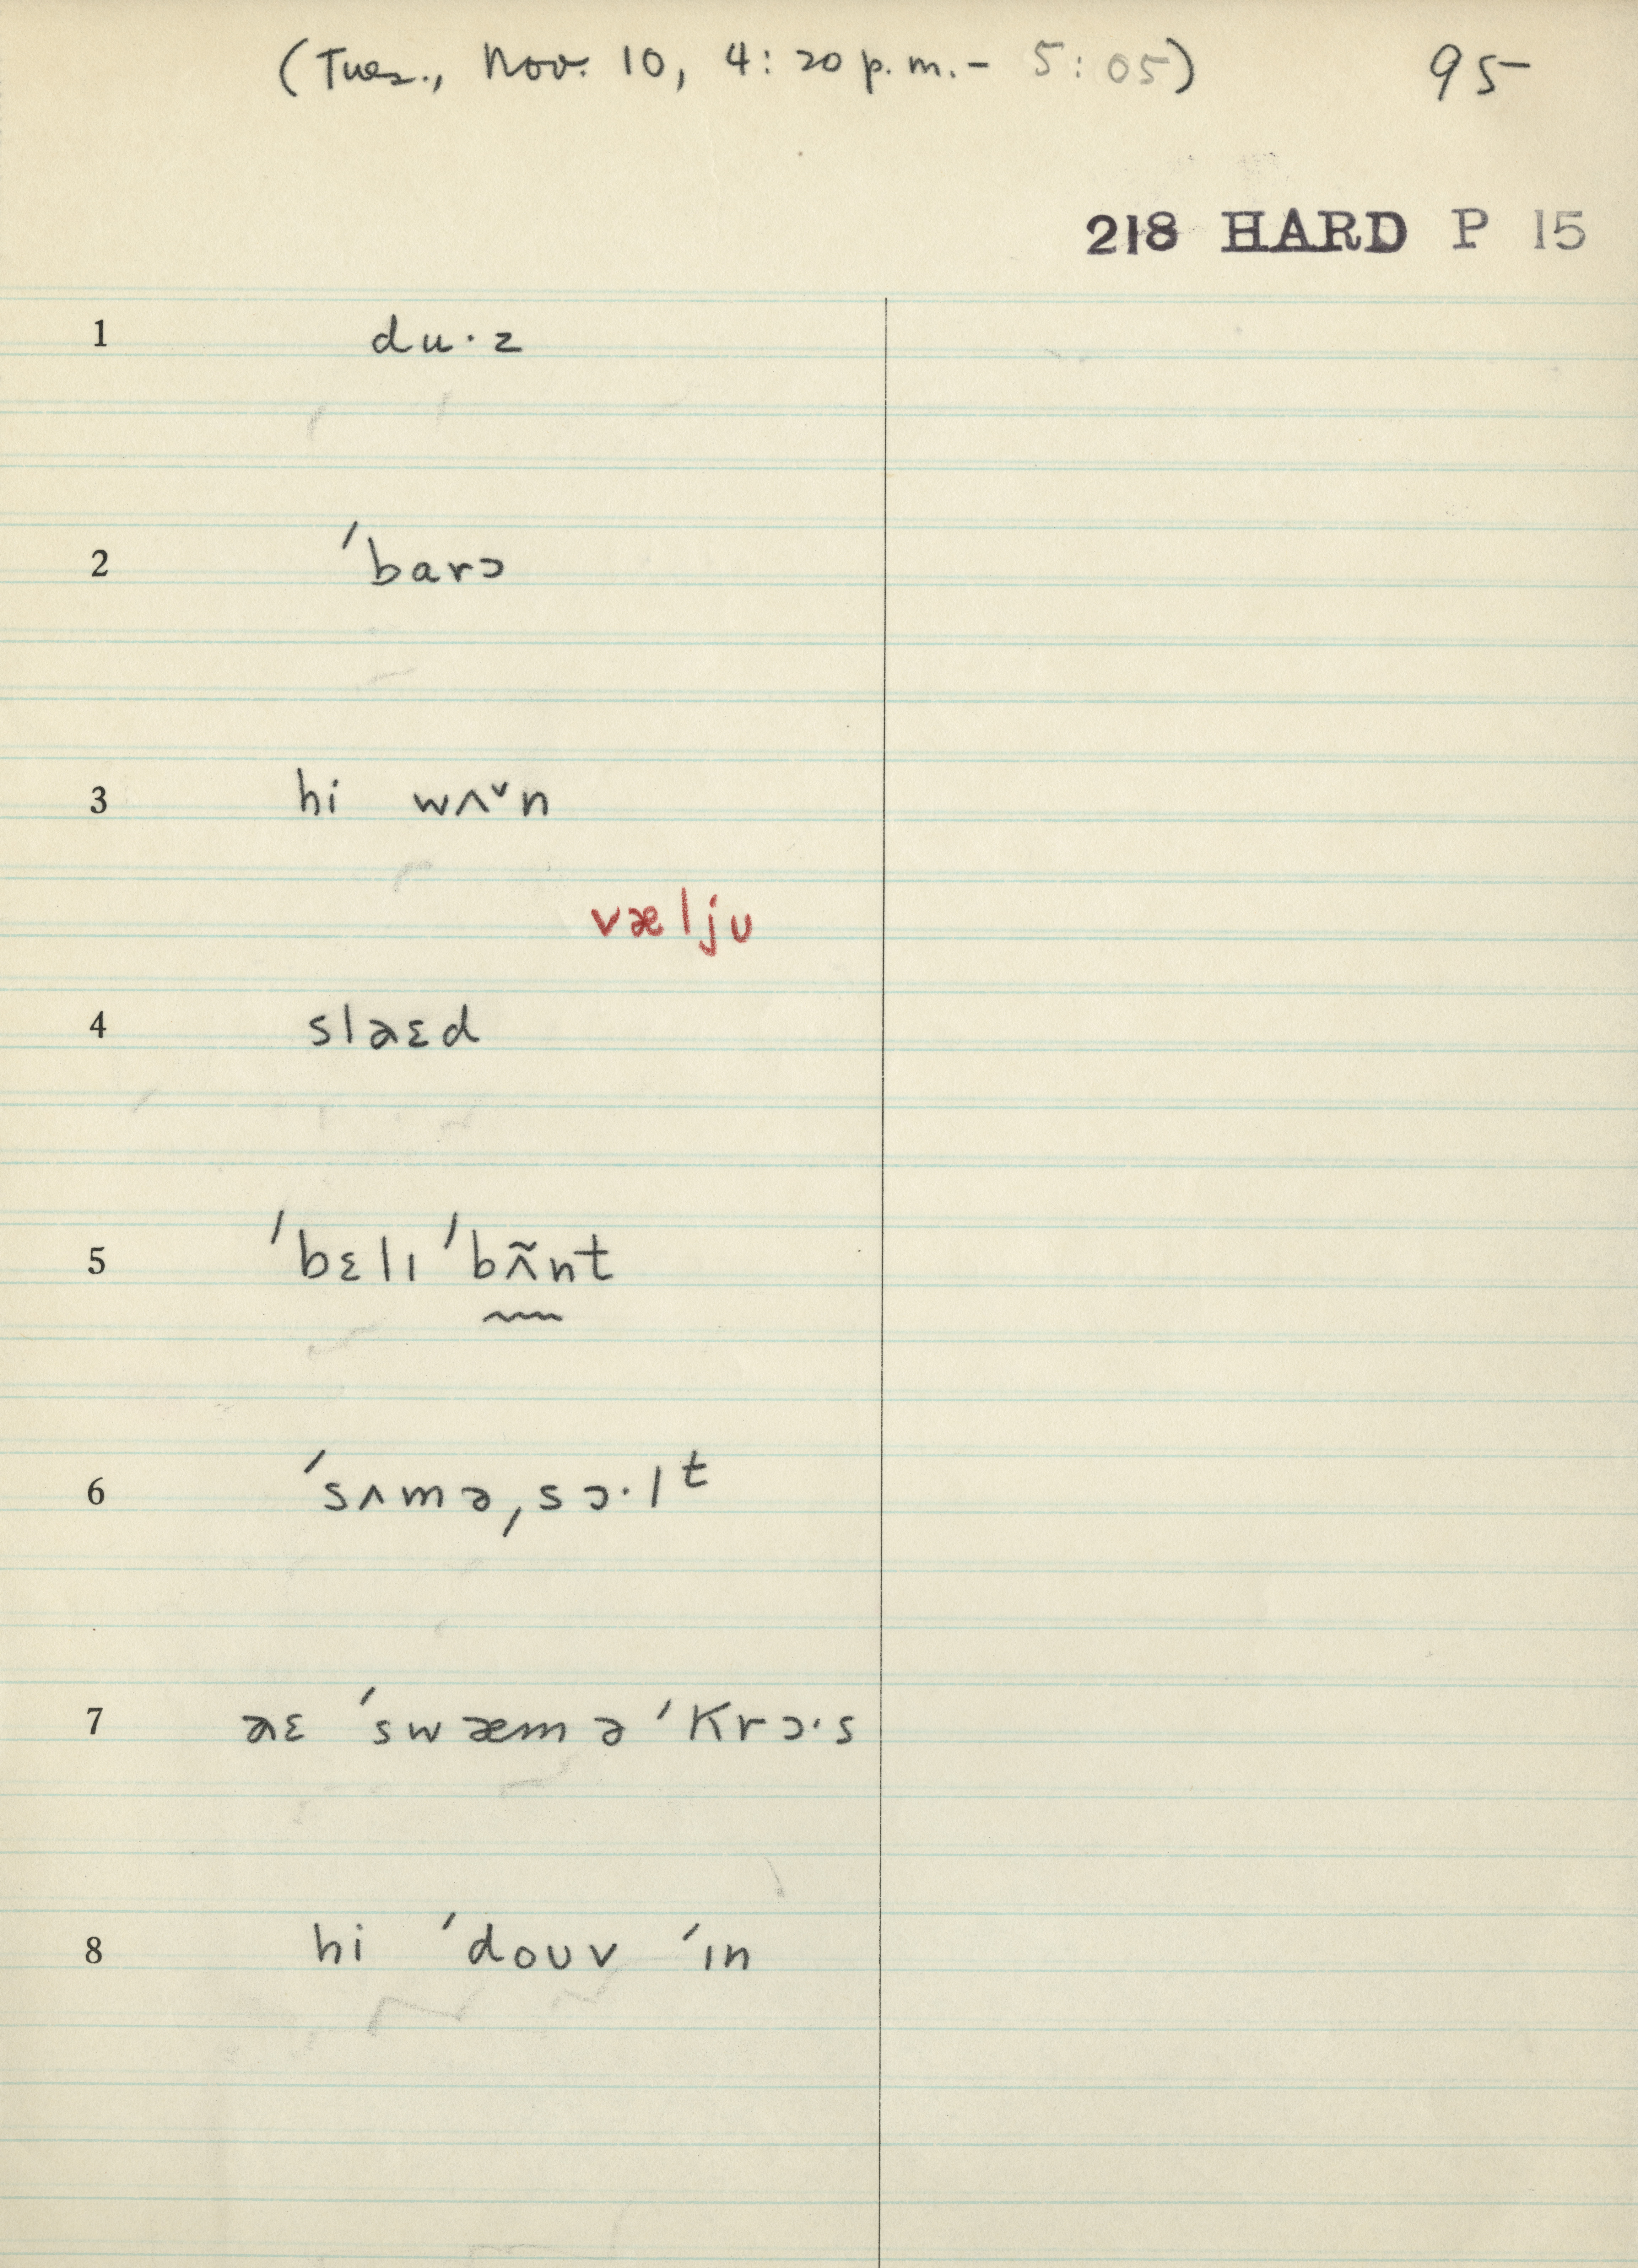 (Tues., Nov. 10, 4:20 p.m. - 5:05) 95
218 HARD P 15
1 du·z
2 ˈbarɔ
3 hi wʌ˅n
vælju
4 slaɛd
5 ˈbɛlɪ ˈbʌ̃nt
6 ˈsʌməˌsɔ·lᵗ
7 aɛ ˈswæm ə ˈkrɔ·s
8 hi ˈdoʊv ˈɪn